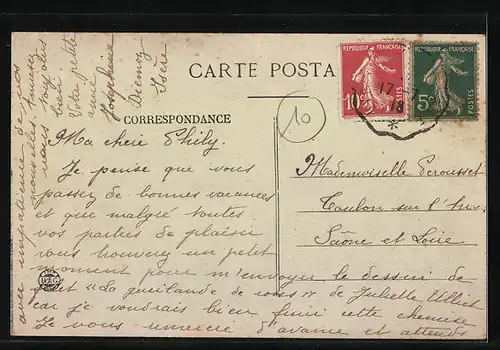 CARTE POSTA
RÉPUBLIQUE FRANÇAISE
10c
POSTES
RÉPUBLIQUE FRANÇAISE
5c
POSTES
17
18
*
10
CORRESPONDANCE
Ma chère Phily.
Je pense que vous
passez de bonnes vacances
et que malgré toutes
vos parties de plaisir
vous trouverez un petit
moment pour m'envoyer le dessin de
filet "La guirlande de roses" de Juliette
car je voudrais bien finir cette chemise
Je vous remercie d'avance et attends
avec impatience de vos
nouvelles. Amusez
vous toujours
bien
Votre petite
amie
Joséphine
Diémoz
Isère
Mademoiselle Perousset
Toulon sur l'Arroux
Saône et Loire